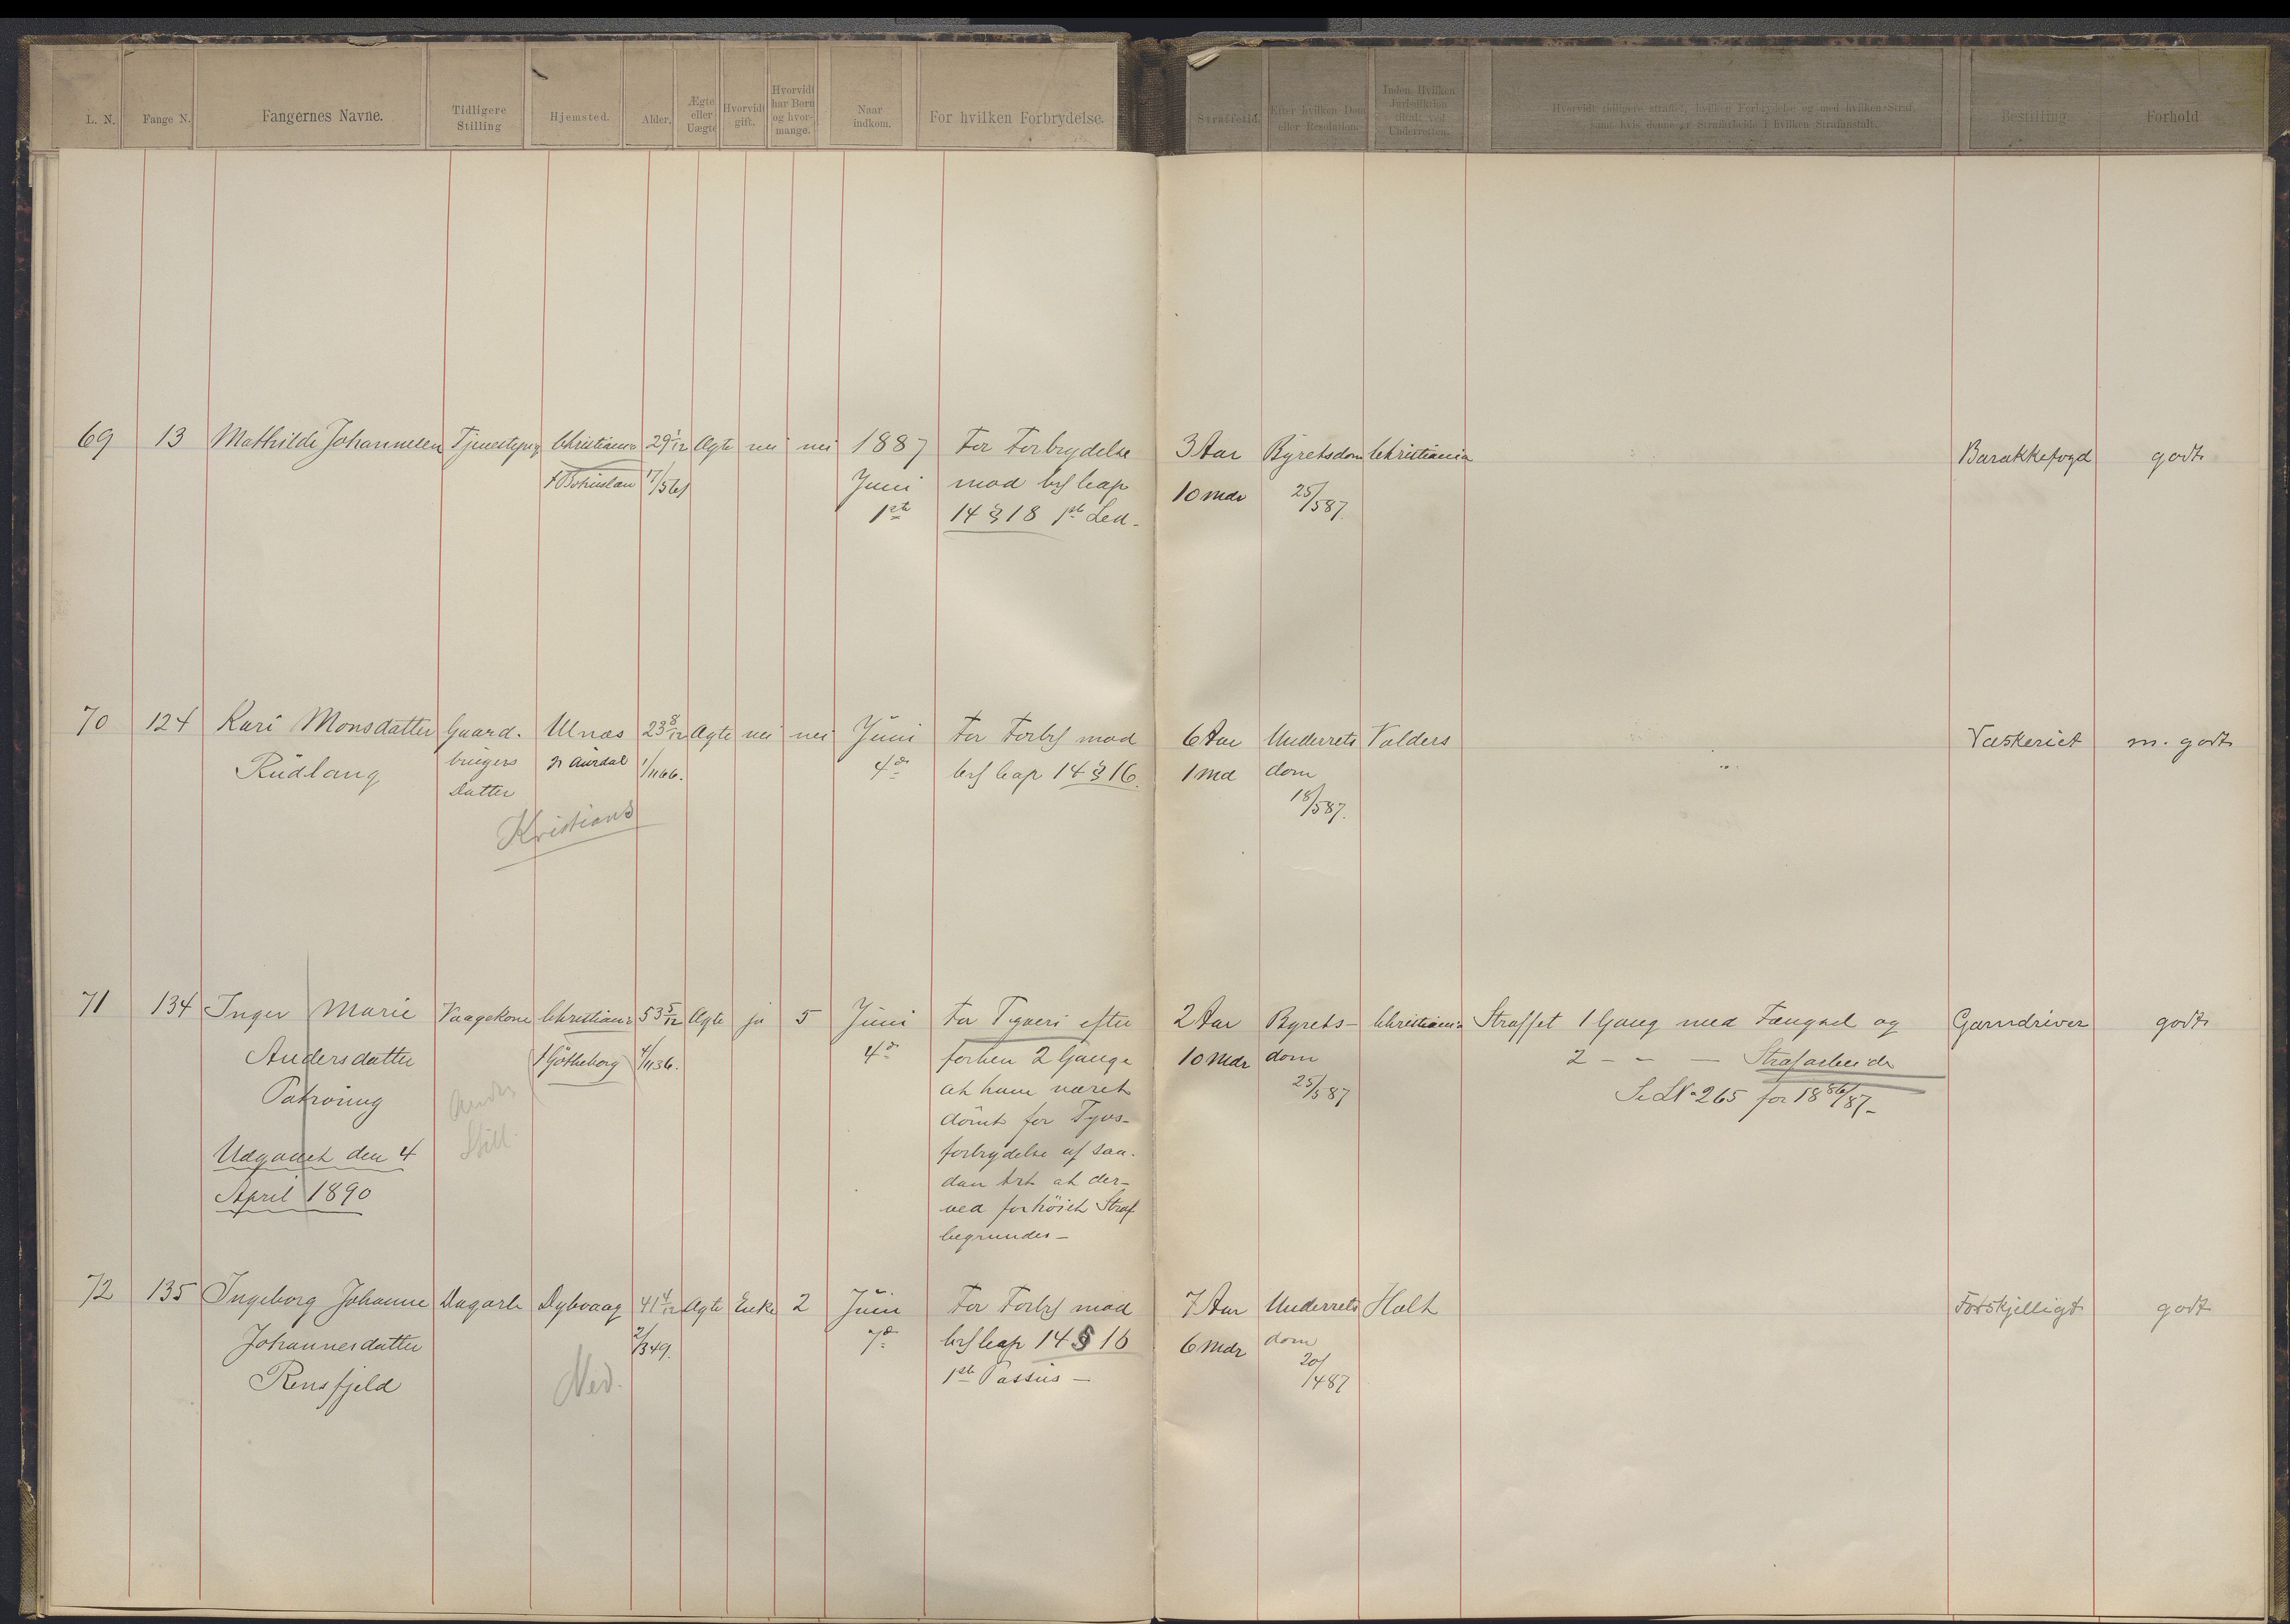 L. N. Fange N. Fangernes Navne. Tidligere Stilling Hjemsted. Alder. Ægte eller Uægte Hvorvidt gift. Hvorvidt har Børn og hvormange. Naar indkom. For hvilken Forbrydelse. Straffetid. Efter hvilken Dom eller Resolution. Inden Hvilken Jurisdiktion tiltalt ved Underretten. Hvorvidt tidligere straffet, hvilken Forbrydelse og med hvilken Straf, samt hvis denne er Strafarbeide i hvilken Strafanstalt. Bestilling Forhold
69 13 Mathilde Johannesen Tjenestepig Christiania 29 1/12 Ægte nei nei 1887 For Forbrydelse 3 Aar Byretsdom Christiania Barakkefogd godt
f Bohuslän 17/4 58 Juni mod crf cap 10 mdr 25/5 87.
1ste 14 § 18 1ste Led.
70 124 Kari Monsdatter Gaard- Ulnæs 23 8/12 Ægte nei nei Juni For Forbrf mod 6 Aar Underrets Valders Væskeriet m. godt
Rudlang brugers N Aurdal 1/11 66. 4de crf cap 14 § 16. 1 Md dom
Datter 18/5 87.
Kristians
71 134 Inger Marie Vaagekone Christiania 53 5/12 Ægte ja 5 Juni For Tyveri efter 2 Aar Byrets- Christiania Straffet 1 Gang med Fængsel og Garndriver godt
Andersdatter (f Götheborg) 4/1 36. 4de forhen 2 Gange 10 Mdr dom 2 - - - Strafarbeide
at have været 25/5 87 Se LN 265 for 1886/87-
dömt for Tyvs-
Udgaaet den 4 forbrydelse af saa-
April 1890 dan Art at der-
ved forhöiet Straf
begrundes -
72 135 Ingeborg Johanne Dagarb Dybvaag 41 4/12 Ægte Enke 2 Juni For Forbrf mod 7 Aar Underrets Holt Forskjelligt godt
Johannesdatter 2/3 49. 7de crf cap 14 § 16 6 Mdr dom
Rensfjeld Ned. 1ste Passus - 20/4 87